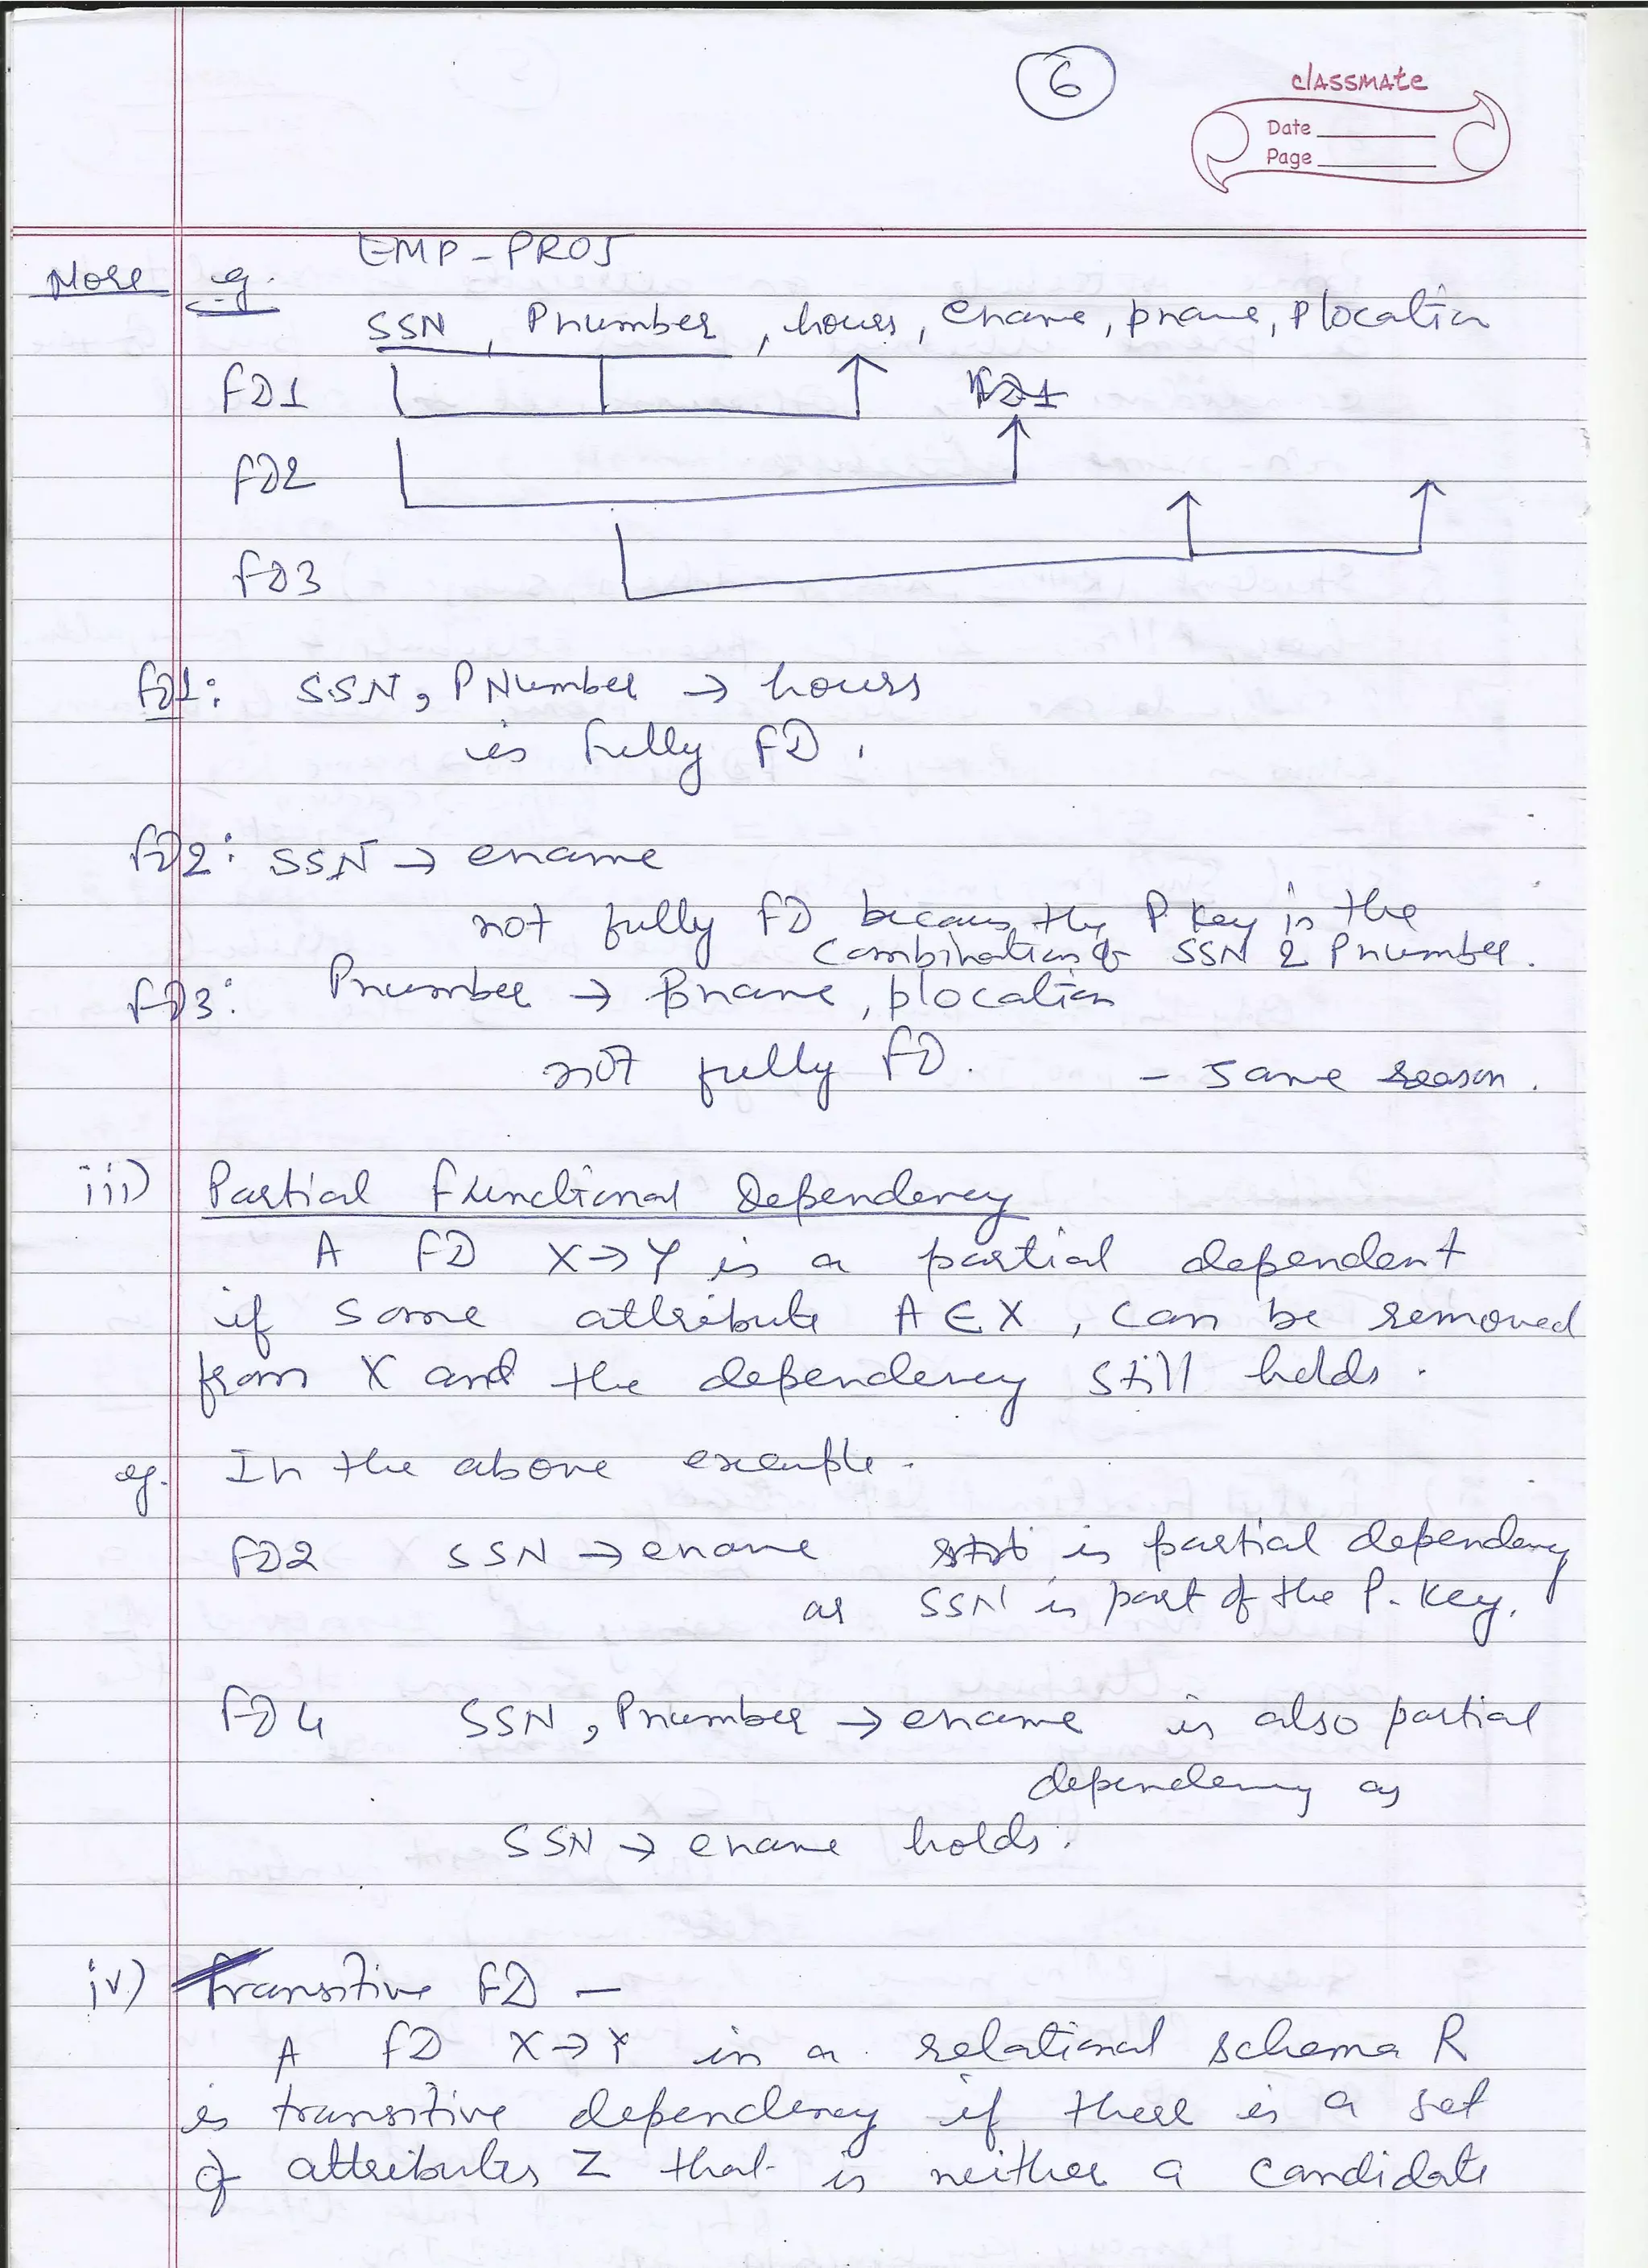 6
classmate
Date
Page
EMP-PROJ
More eg.
SSN, Pnumber, hours, ename, pname, Plocation
FD1 FD1
FD2
FD3
FD1: SSN, PNumber → hours
is fully FD.
FD2: SSN → ename
not fully FD becaus the P. Key is the
Combination of SSN & Pnumber.
FD3: Pnumber → Pname, plocation
not fully FD. - Same reason.
iii) Partial Functional Dependency
A FD X→Y is a partial dependent
if some attribute A∈X, can be removed
from X and the dependency still holds.
eg. In the above example.
FD2 SSN → ename is partial dependency
as SSN is part of the P. Key.
FD4 SSN, Pnumber → ename is also partial
dependency as
SSN → ename holds.
iv) Transitive FD —
A FD X→Y in a relational schema R
is transitive dependency if there is a set
of attributes Z that is neither a candidate